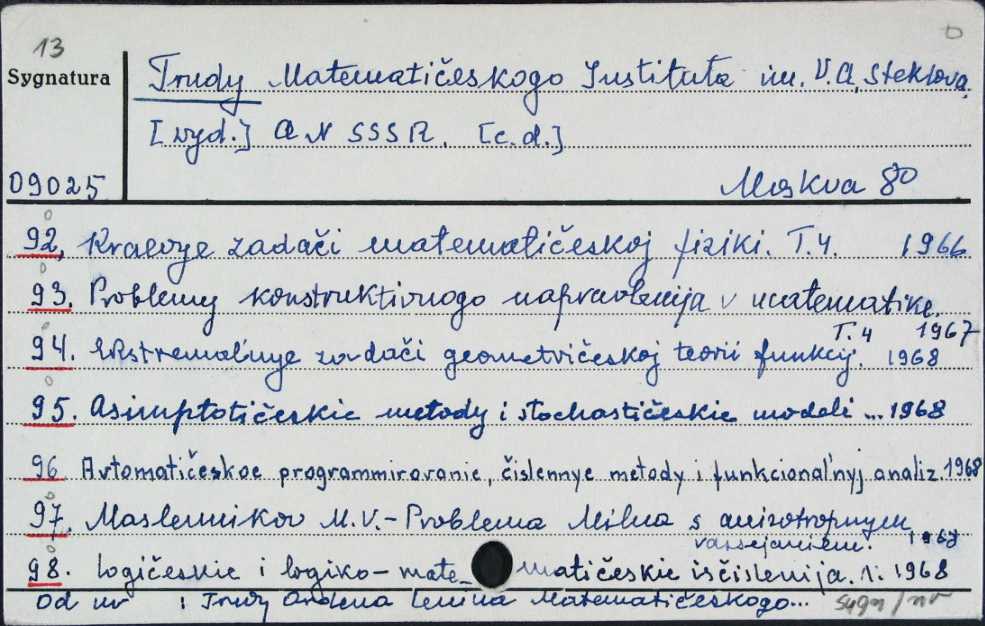 13
Sygnatura
Trudy Matematičeskogo Instituta im. V.A. Steklova.
[wyd.] AN SSSR. [c.d.]
09025
Moskva 80
92. Kraevye zadači matematičeskoj fiziki. T.4. 1966
93. Problemy konstruktivnogo napravlenija v matematike.
T.4 1967
94. Ekstremal'nye zadači geometričeskoj teorii funkcij. 1968
95. Asimptotičeskie metody i stochastičeskie modeli ... 1968
96. Avtomatičeskoe programmirovanie, čislennye metody i funkcional'nyj analiz. 1968
97. Maslennikov M.V. - Problema Milna s anizotropnym
rassejaniem. 1968
98. Logičeskie i logiko-mate- matičeskie isčislenija. 1. 1968
Od nr : Trudy Ordena Lenina Matematičeskogo...
sygn / nr